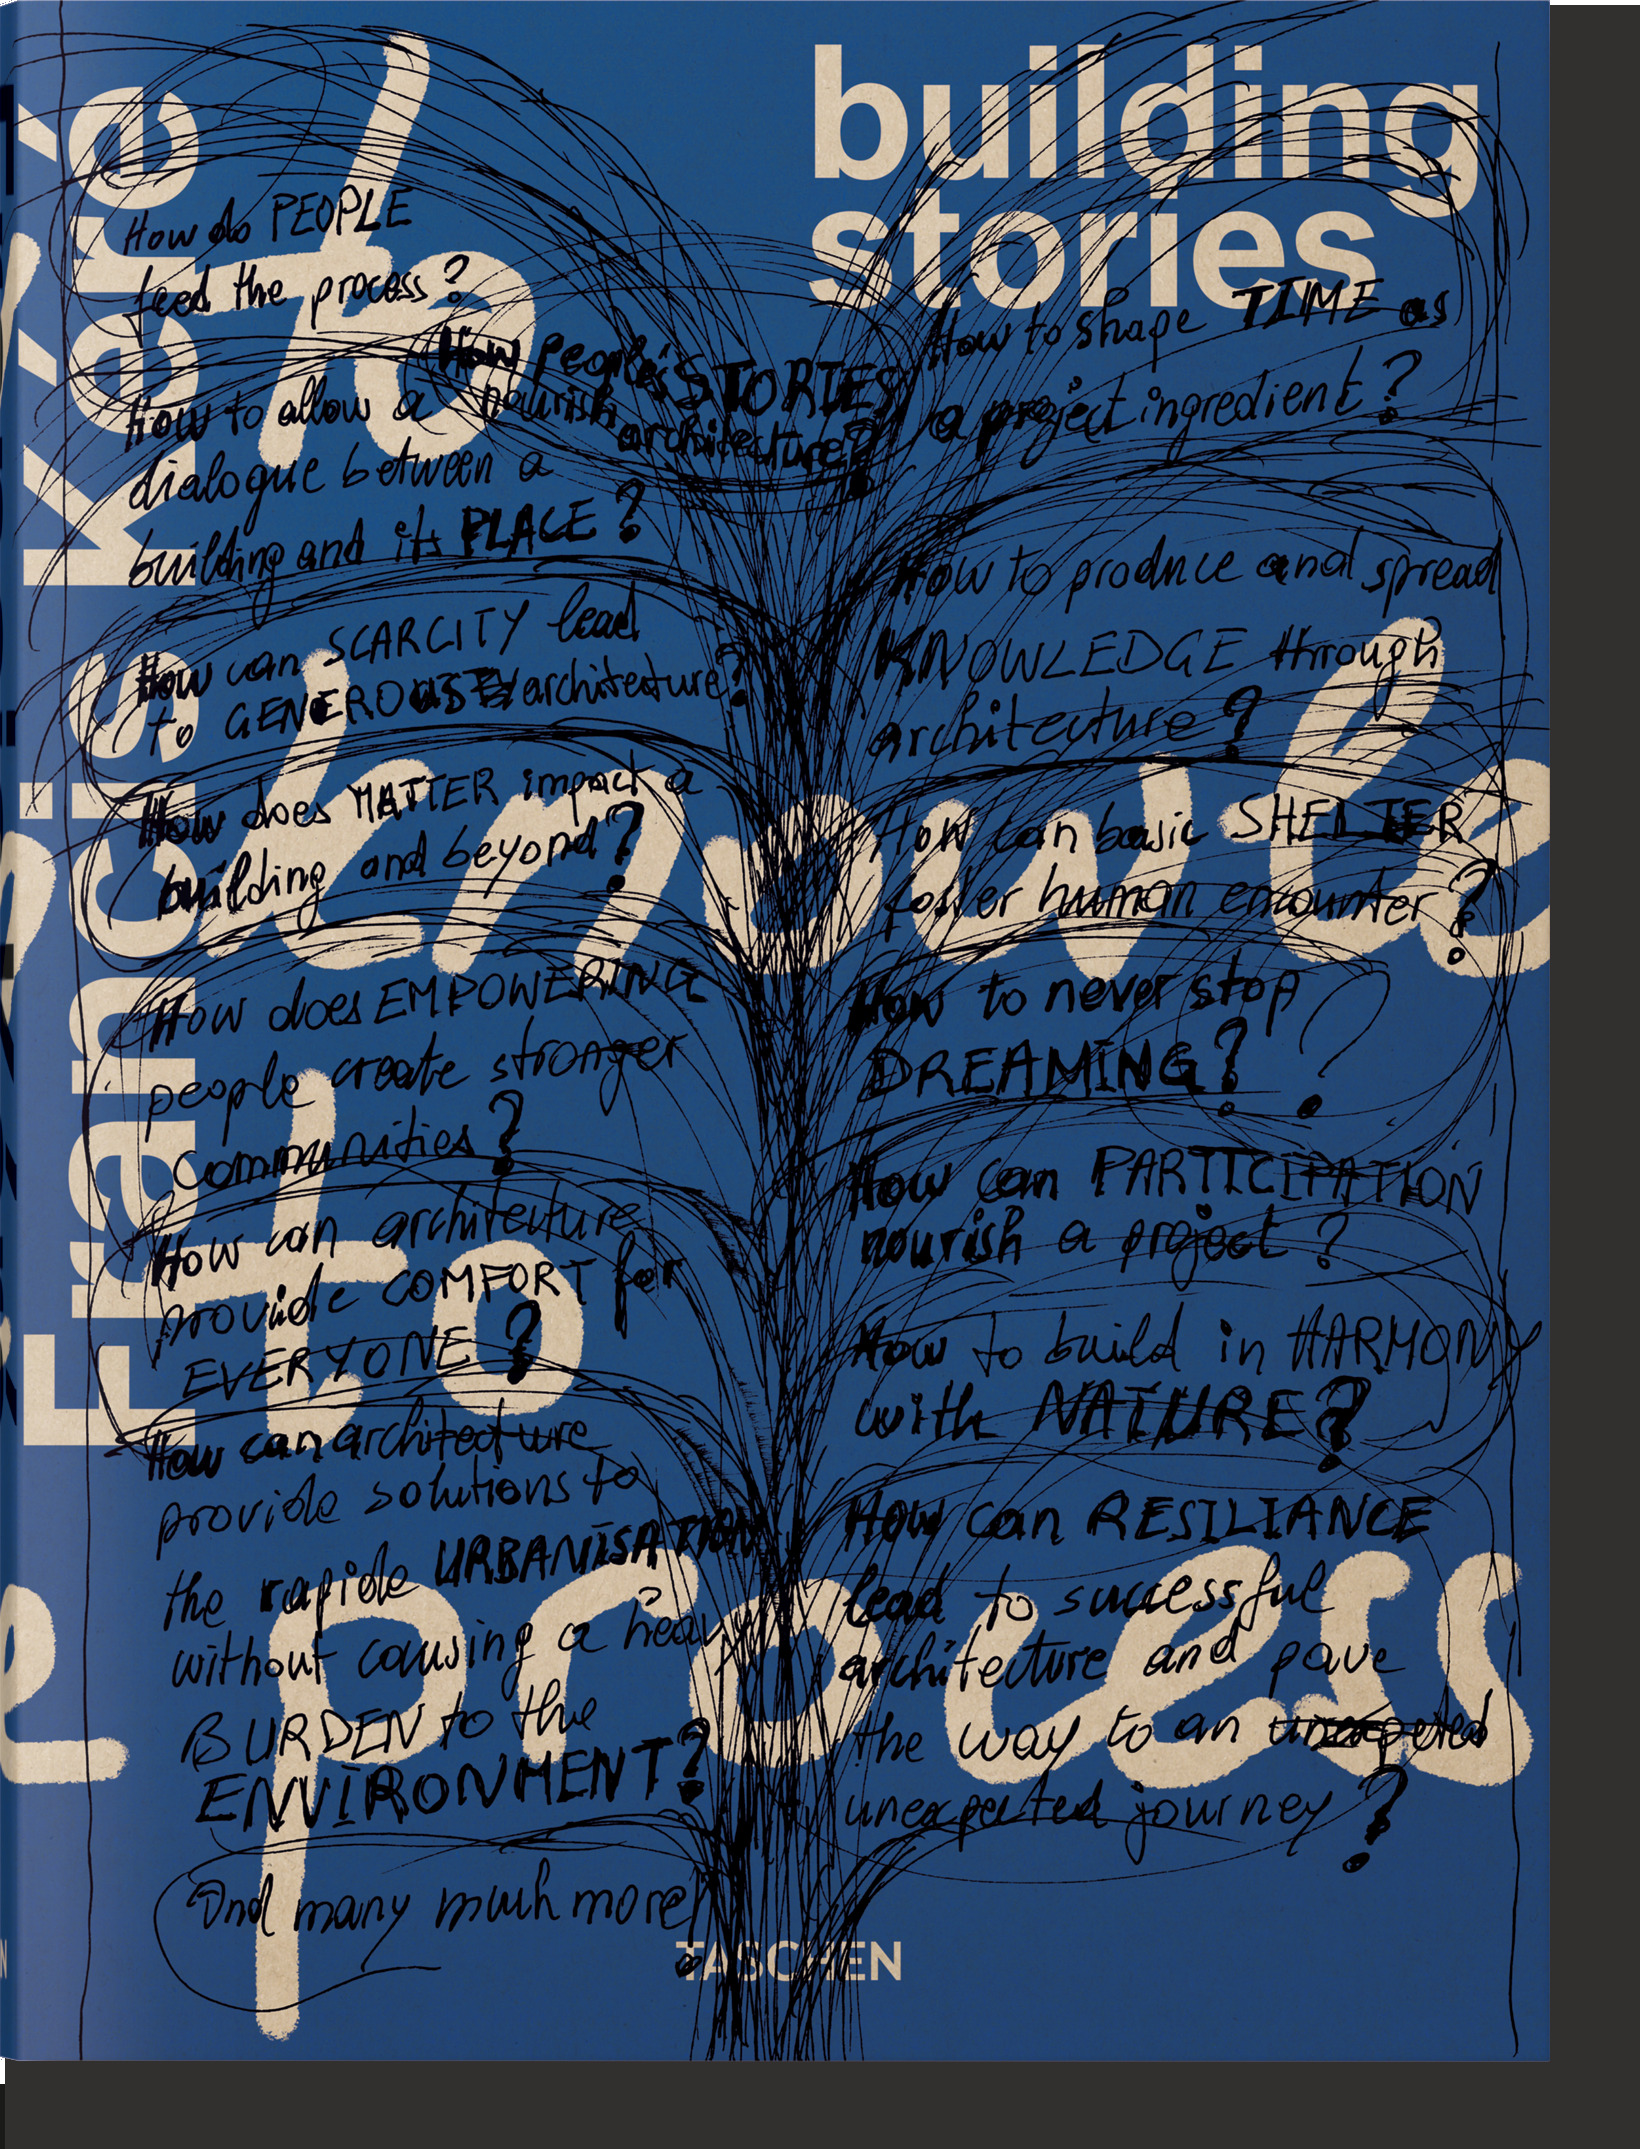 building
stories
Francis Kéré
to
knowle
to
process
How do PEOPLE
feed the process?
How people's STORIES
nourish
architecture?
How to shape TIME as
a project ingredient?
How to allow a
dialogue between a
building and its PLACE?
How can SCARCITY lead
to GENEROUS architecture?
How does MATTER impact a
building and beyond?
How does EMPOWERING
people create stronger
communities?
How can architecture
provide COMFORT for
EVERYONE?
How can architecture
provide solutions to
the rapide URBANISATION
without causing a heavy
BURDEN to the
ENVIRONMENT?
And many much more!
How to produce and spread
KNOWLEDGE through
architecture?
How can basic SHELTER
foster human encounter?
How to never stop
DREAMING? ?
How can PARTICIPATION
nourish a project?
How to build in HARMONY
with NATURE?
How can RESILIANCE
lead to successful
architecture and pave
the way to an
unexpected journey?
TASCHEN